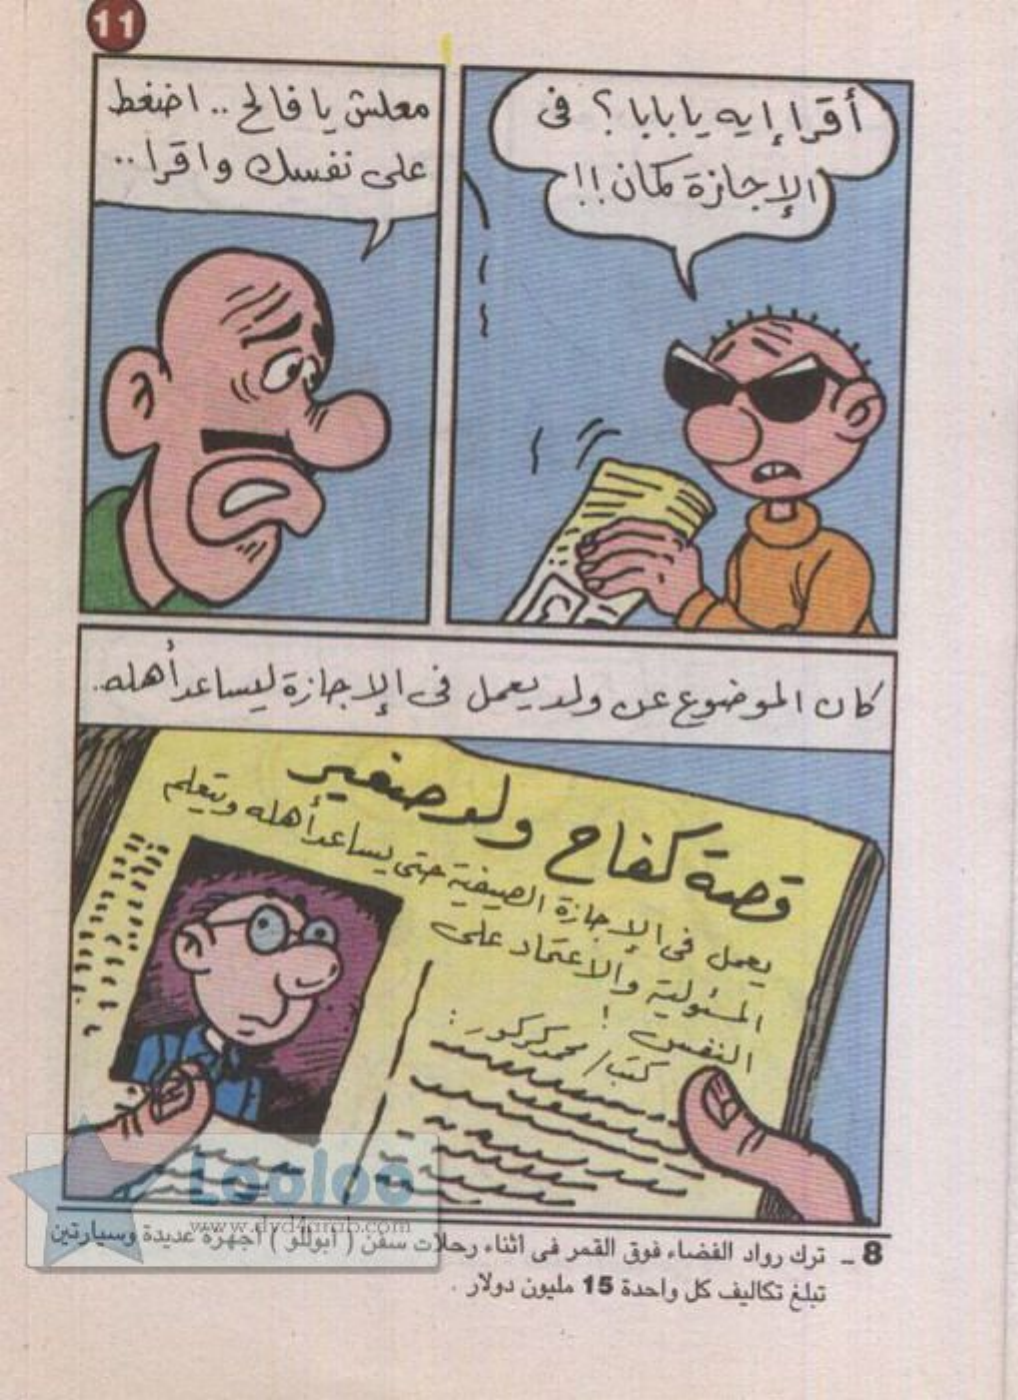 11
أقرا إيه يا بابا ؟ فى
الإجازة كمان !!
معلش يا فالح .. اضغط
على نفسك واقرا ..
كان الموضوع عن ولد يعمل فى الإجازة ليساعد أهله..
قصة كفاح ولد صغير
يعمل فى الإجازة الصيفية حتى يساعد أهله ويتعلم
المسئولية والاعتماد على
النفس !
كتب / محمد كركور :
Looloo
www.dvd4arab.com
8 ـ ترك رواد الفضاء فوق القمر فى أثناء رحلات سفن ( أبوللو ) أجهزة عديدة وسيارتين
تبلغ تكاليف كل واحدة 15 مليون دولار .